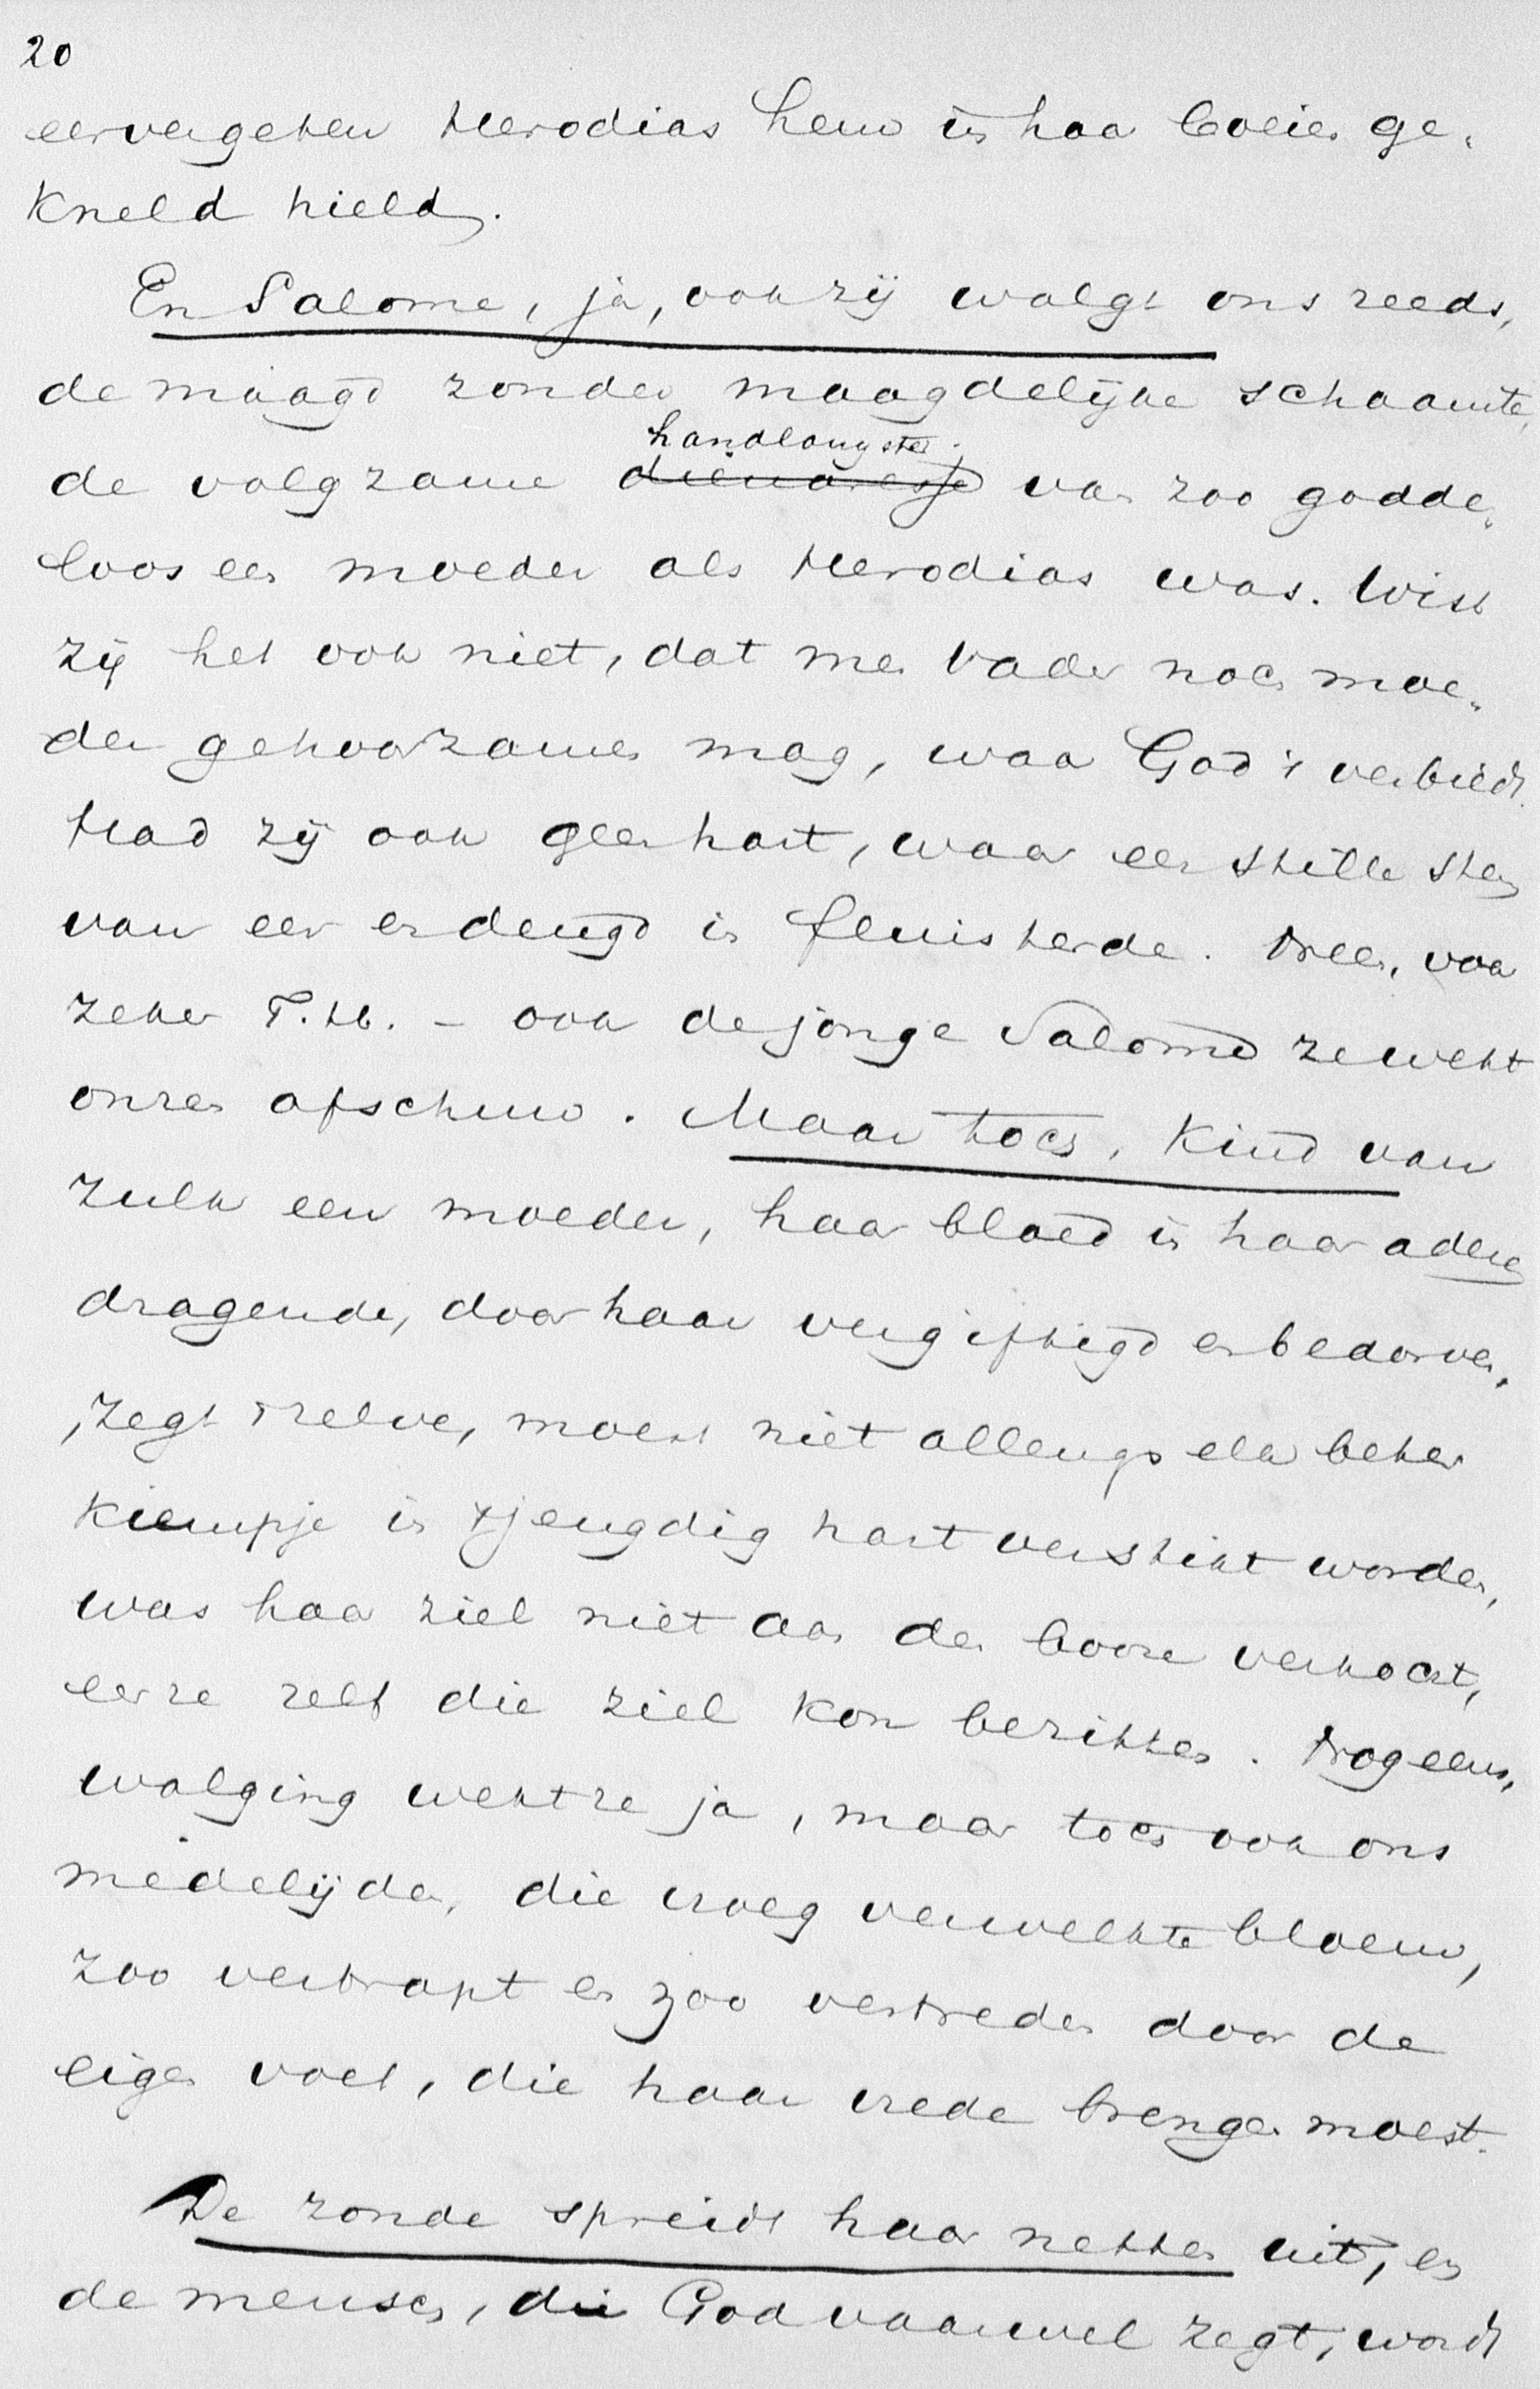 20
eervergeten Herodias hem in haar boeien ge-
kneld hield.
En Salome, ja, ook zij walgt ons reeds,
de maagd zonder maagdelijke schaamte,
handlangster
de volgzame dienaresse van zoo godde-
loos een moeder als Herodias was. Wist
zij het ook niet, dat men vader noch moe-
der gehoorzamen mag, waar God 't verbiedt.
Had zij ook geen hart, waar een stille stem
van eer en deugd in fluisterde. Neen, voor
zeker T.H. - ook de jonge Salome ze wekt
onzen afschuw. Maar toch, kind van
zulk een moeder, haar bloed in haar aderen
dragende, door haar vergiftigd en bedorven,
zegt zelve, moest niet allengs elk beter
kiempje in 't jeugdig hart verstikt worden,
was haar ziel niet aan den booze verkocht,
eer ze zelf die ziel kon bezitten. Nog eens,
walging wekt ze ja, maar toch ook ons
medelijden, die vroeg verwelkte bloem,
zoo vertrapt en zoo vertreden door de
eigen voet, die haar vrede brengen moest.
De zonde spreidt haar netten uit, en
de mensch, die God vaarwel zegt, wordt